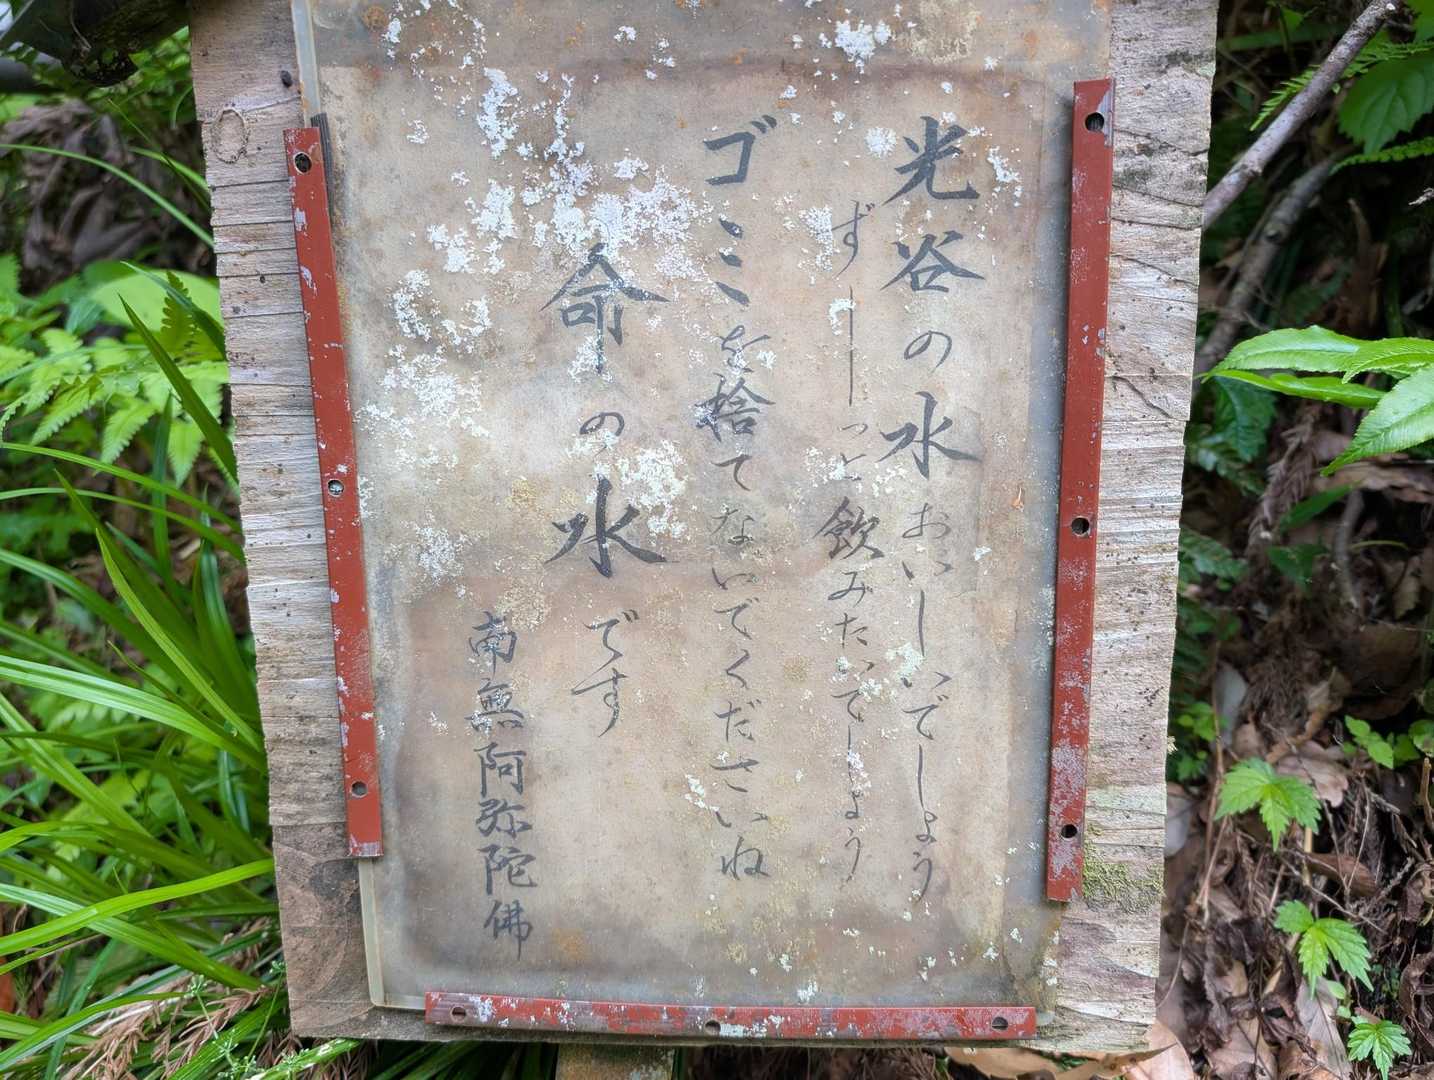 光谷の水おいしいでしょう
ずーっと飲みたいでしょう
ゴミを捨てないでくださいね
命の水です
南無阿弥陀佛